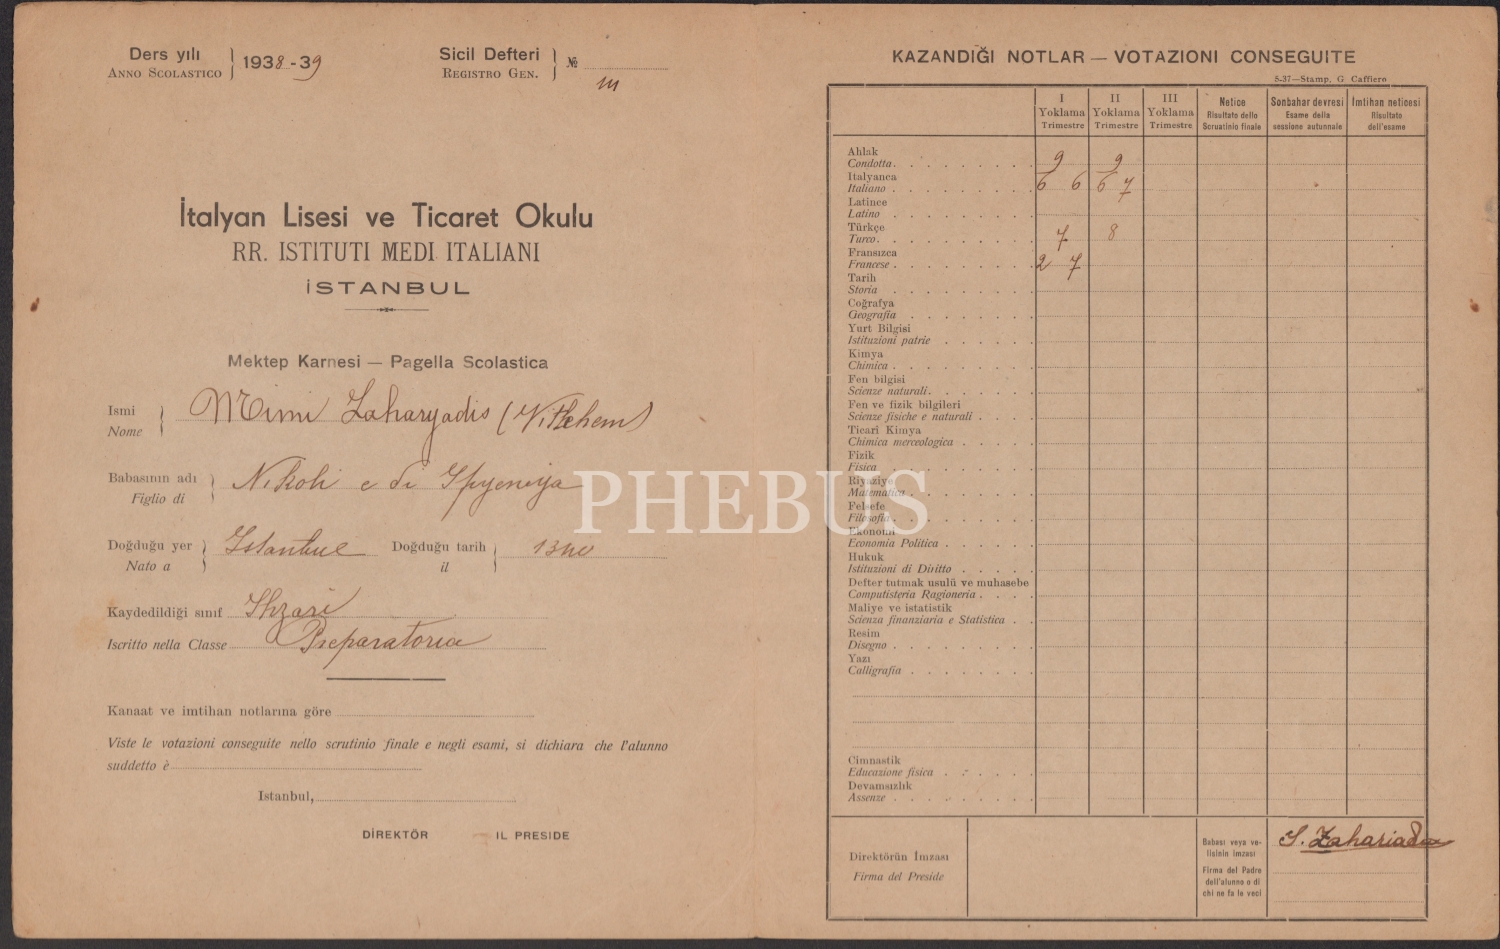 Ders yılı
ANNO SCOLASTICO
1938-39
Sicil Defteri
REGISTRO GEN.
№
İtalyan Lisesi ve Ticaret Okulu
RR. ISTITUTI MEDI ITALIANI
İSTANBUL
Mektep Karnesi — Pagella Scolastica
Ismi
Nome
Mimi Zaharyadis
Babasının adı
Figlio di
Nikoli e di
Doğduğu yer
Nato a
Istanbul
Doğduğu tarih
il
1340
Kaydedildiği sınıf
Ihzari
Iscritto nella Classe
Preparatoria
Kanaat ve imtihan notlarına göre
Viste le votazioni conseguite nello scrutinio finale e negli esami, si dichiara che l'alunno
suddetto è
Istanbul,
DİREKTÖR IL PRESIDE
KAZANDIĞI NOTLAR — VOTAZIONI CONSEGUITE
5-37—Stamp. G Caffiero
I
Yoklama
Trimestre
II
Yoklama
Trimestre
III
Yoklama
Trimestre
Netice
Risultato dello
Scruatinio finale
Sonbahar devresi
Esame della
sessione autunnale
Imtihan neticesi
Risultato
dell'esame
Ahlak
Condotta 9 9
Italyanca
Italiano 6 6 6 7
Latince
Latino
Türkçe
Turco 7 8
Fransızca
Francese 2 7
Tarih
Storia
Coğrafya
Geografia
Yurt Bilgisi
Istituzioni patrie
Kimya
Chimica
Fen bilgisi
Scienze naturali
Fen ve fizik bilgileri
Scienze fisiche e naturali
Ticari Kimya
Chimica merceologica
Fizik
Fisica
Riyaziye
Matematica
Felsefe
Filosofia
Ekonomi
Economia Politica
Hukuk
Istituzioni di Diritto
Defter tutmak usulü ve muhasebe
Computisteria Ragioneria
Maliye ve istatistik
Scienza finanziaria e Statistica
Resim
Disegno
Yazı
Calligrafia
Cimnastik
Educazione fisica
Devamsızlık
Assenze
Direktörün İmzası
Firma del Preside
Babası veya ve-
lisinin imzası
Firma del Padre
dell'alunno o di
chi ne fa le veci
PHEBUS